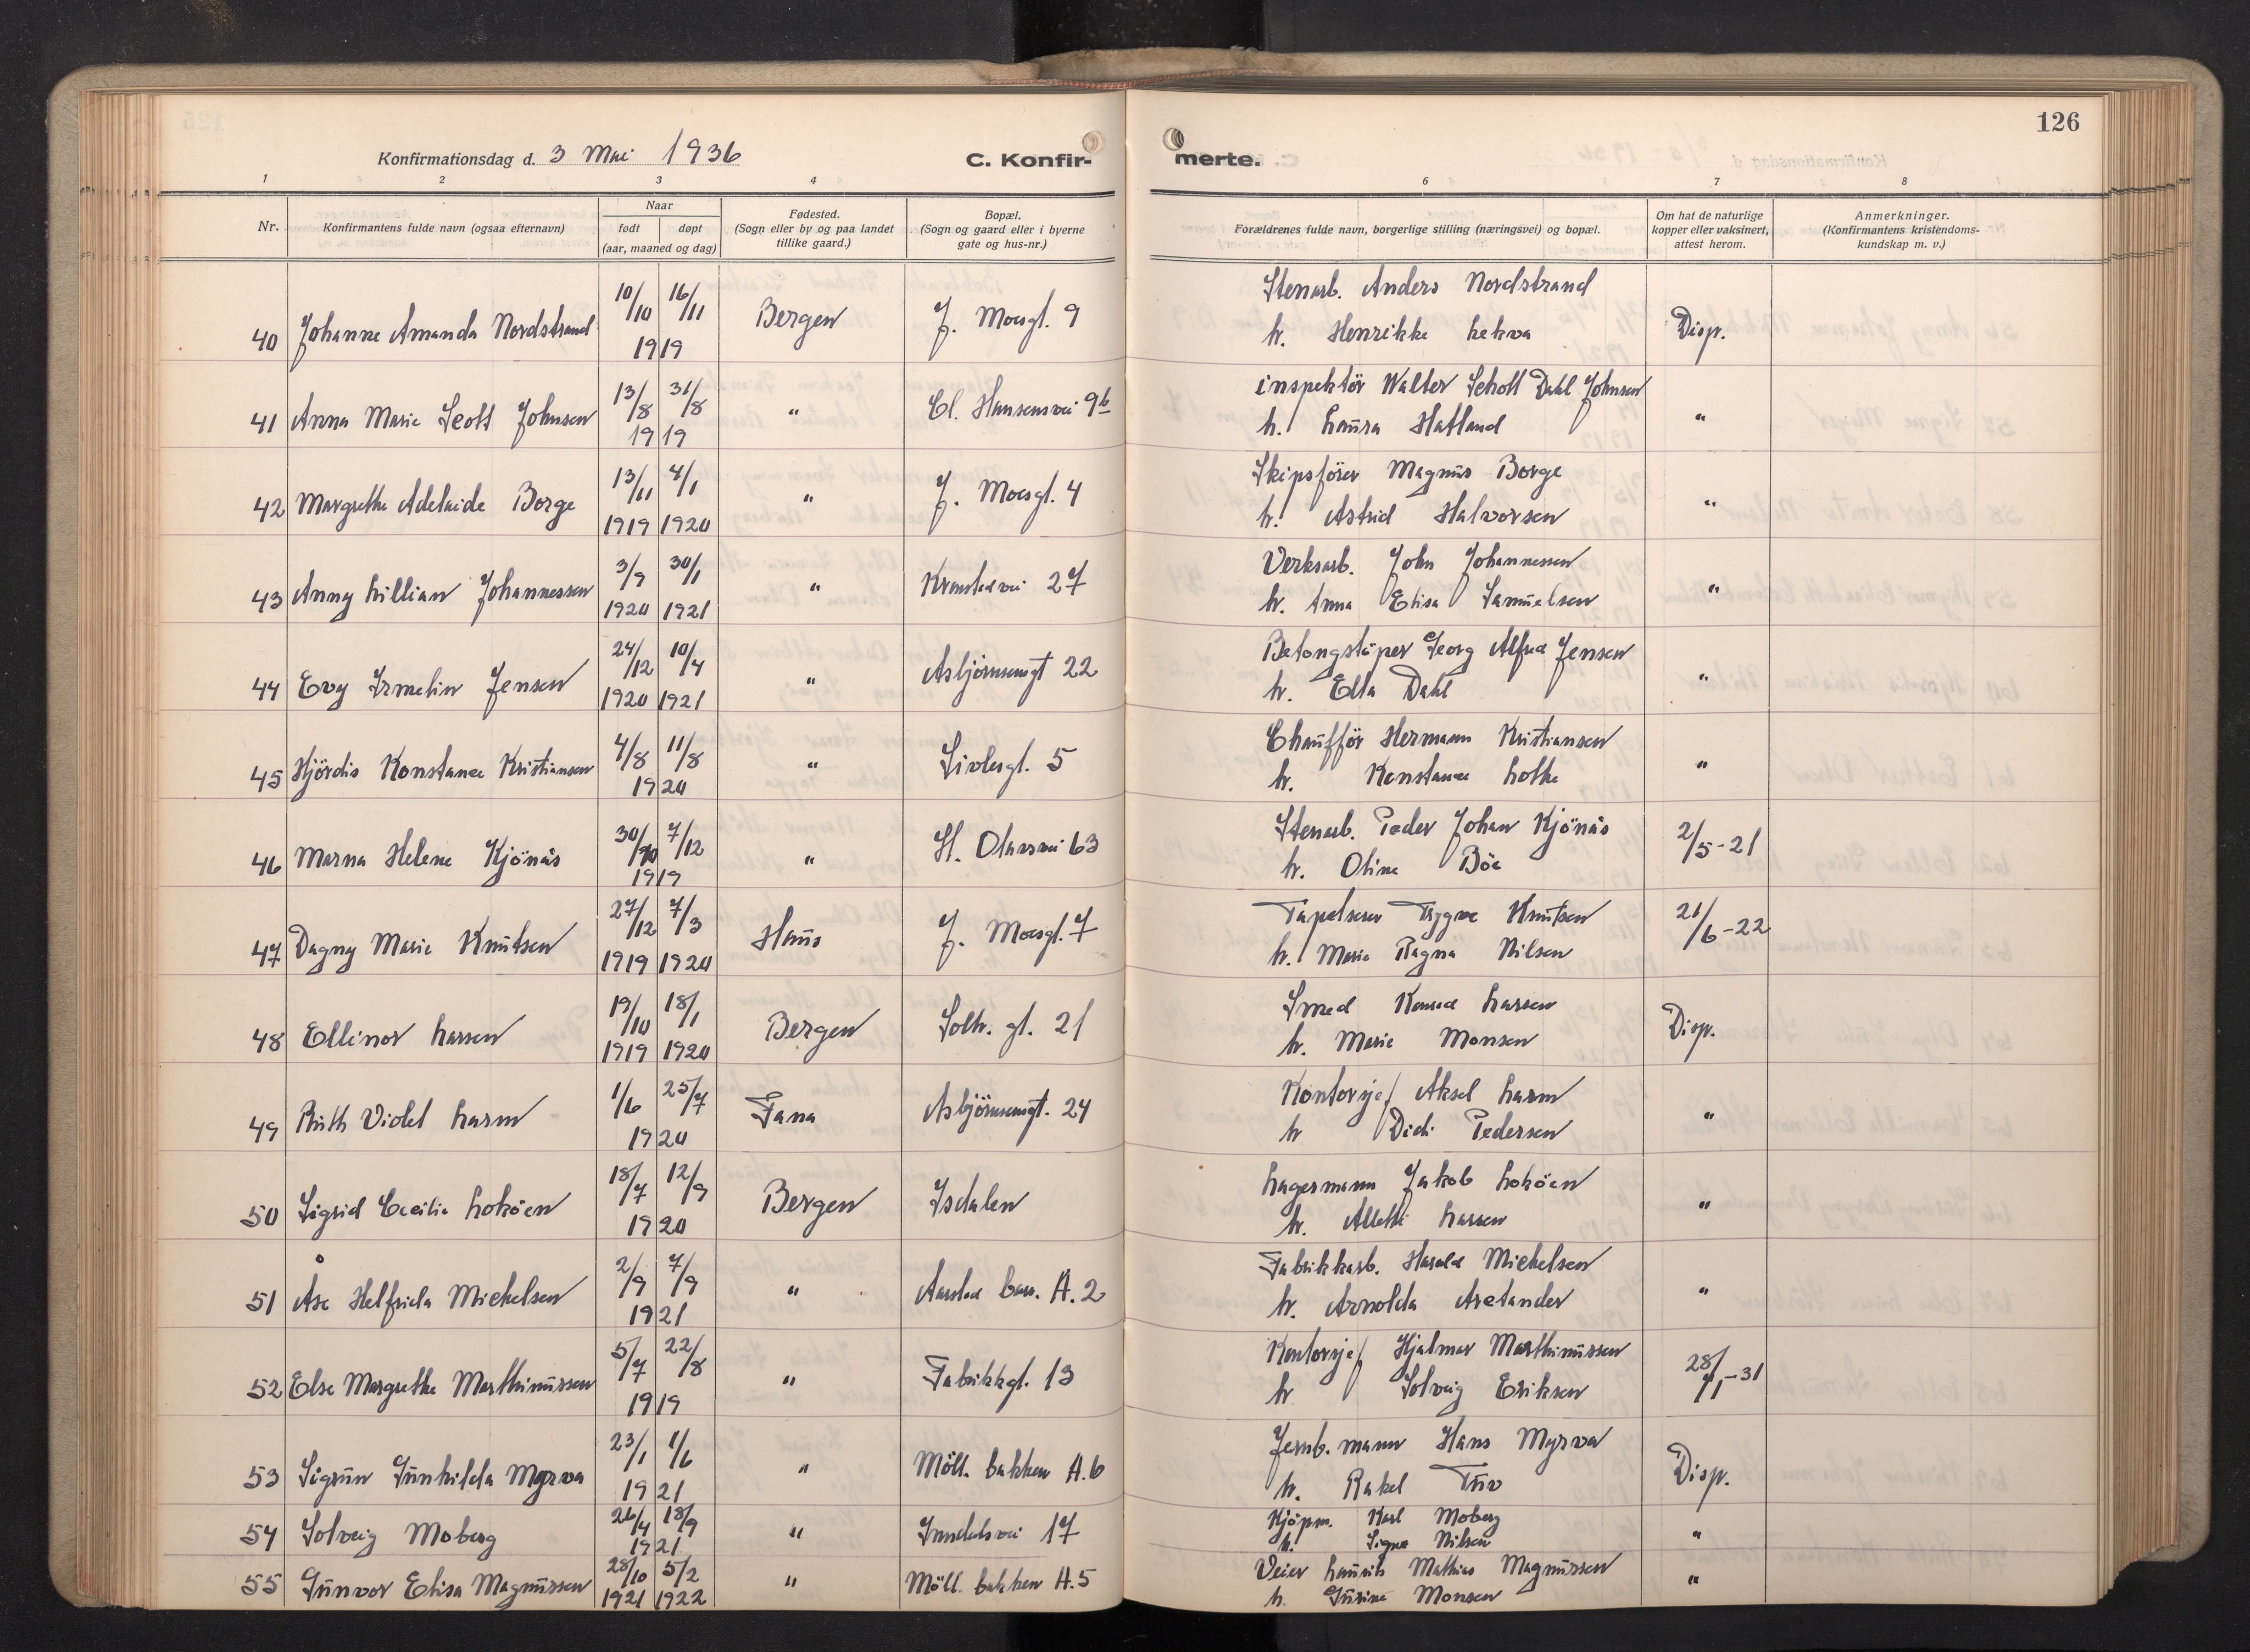 126
Konfirmationsdag d. 3 Mai 1936
C. Konfir-
merte.
1 2 3 4 6 7 8
Nr.
Konfirmantens fulde navn (ogsaa efternavn)
Naar
født døpt
(aar, maaned og dag)
Fødested.
(Sogn eller by og paa landet
tillike gaard.)
Bopæl.
(Sogn og gaard eller i byerne
gate og hus-nr.)
Forældrenes fulde navn, borgerlige stilling (næringsvei) og bopæl.
Om hat de naturlige
kopper eller vaksinert,
attest herom.
Anmerkninger.
(Konfirmantens kristendoms-
kundskap m. v.)
Stenarb. Anders Nordstrand
40 Johanne Amanda Nordstrand 10/10 16/11 1919 Bergen J. Moesgt. 9
h. Henrikke Lekva Disp.
inspektör Walter Schott Dahl Johnsen
41 Anna Marie Scott Johnsen 13/8 31/8 1919 " Cl. Hansensvei 9b
h. Laura Hatland "
Skipsförer Magnus Borge
42 Margrethe Adelaide Borge 13/11 1919 4/1 1920 " J. Moesgt. 4
h. Astrid Halvorsen "
Verksarb. John Johannessen
43 Anny Lillian Johannessen 3/9 1920 30/1 1921 " 27
h. Anna Elisa Samuelsen "
Betongstöper Georg Alfred Jensen
44 Evy Irmelin Jensen 24/12 1920 10/4 1921 " Asbjörnsensgt 22
h. Ella Dahl "
Chaufför Hermann Kristiansen
45 Hjördis Konstance Kristiansen 4/8 11/8 1920 " Sivlesgt. 5
h. Konstance Lothe "
Stenarb. Peder Johan Kjönås
46 Marna Helene Kjönås 30/10 7/12 1919 " St. Olavsvei 63
h. Oline Böe 2/5-21
Tapetserer Trygve Knutsen
47 Dagny Marie Knutsen 27/12 1919 7/3 1920 Haus J. Moesgt. 7
h. Marie Ragna Nilsen 21/6-22
Smed Konrad Larsen
48 Ellinor Larsen 19/10 1919 18/1 1920 Bergen Solh. gt. 21
h. Marie Monsen Disp.
Kontorsjef Aksel Larm
49 Ruth Violet Larm 1/6 25/7 1920 Fana Asbjörnsensgt. 24
h Didi Pedersen "
Lagermann Jakob Loköen
50 Sigrid Cecilie Loköen 18/7 12/9 1920 Bergen Isdalen
h. Alette Larsen "
Fabrikkarb. Harald Mickelsen
51 Åse Helfrida Mickelsen 2/9 7/9 1921 " Aarstad barr. A. 2
h. Arnolda Aretander "
Kontorsjef Hjalmar Marthinussen
52 Else Margrethe Marthinussen 5/7 22/8 1919 " Fabrikkgt. 13
h Solveig Eriksen 28/1-31
Jernb. mann Hans Myrva
53 Sigrun Gunhilda Myrva 23/1 1/6 1921 " Möll. bakken A.6
h. Rakel Tuv Disp.
Kjöpm. Karl Moberg
54 Solveig Moberg 26/4 18/9 1921 " Inndalsvei 17
h. Signe Nilsen "
Veier Lauritz Mathias Magnussen
55 Gunvor Elisa Magnussen 28/10 1921 5/2 1922 " Möll. bakken A.5
h. Gurine Monsen "